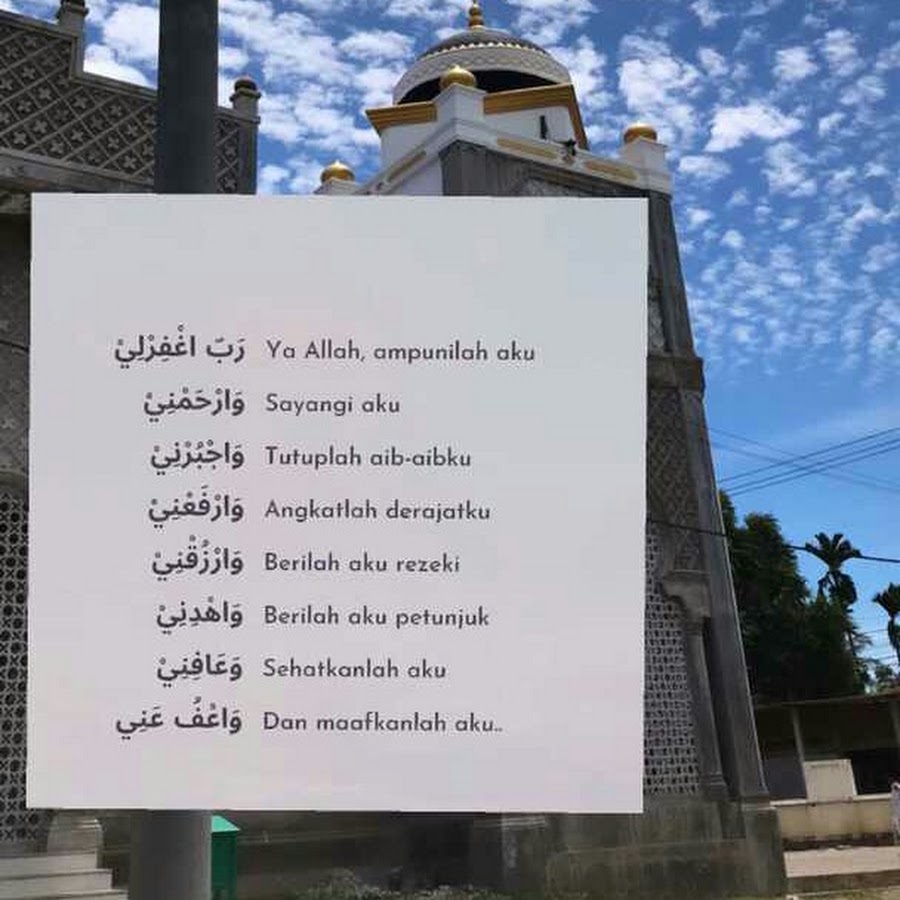 رَبِّ اغْفِرْلِيْ Ya Allah, ampunilah aku
وَارْحَمْنِيْ Sayangi aku
وَاجْبُرْنِيْ Tutuplah aib-aibku
وَارْفَعْنِيْ Angkatlah derajatku
وَارْزُقْنِيْ Berilah aku rezeki
وَاهْدِنِيْ Berilah aku petunjuk
وَعَافِنِيْ Sehatkanlah aku
وَاعْفُ عَنِي Dan maafkanlah aku..